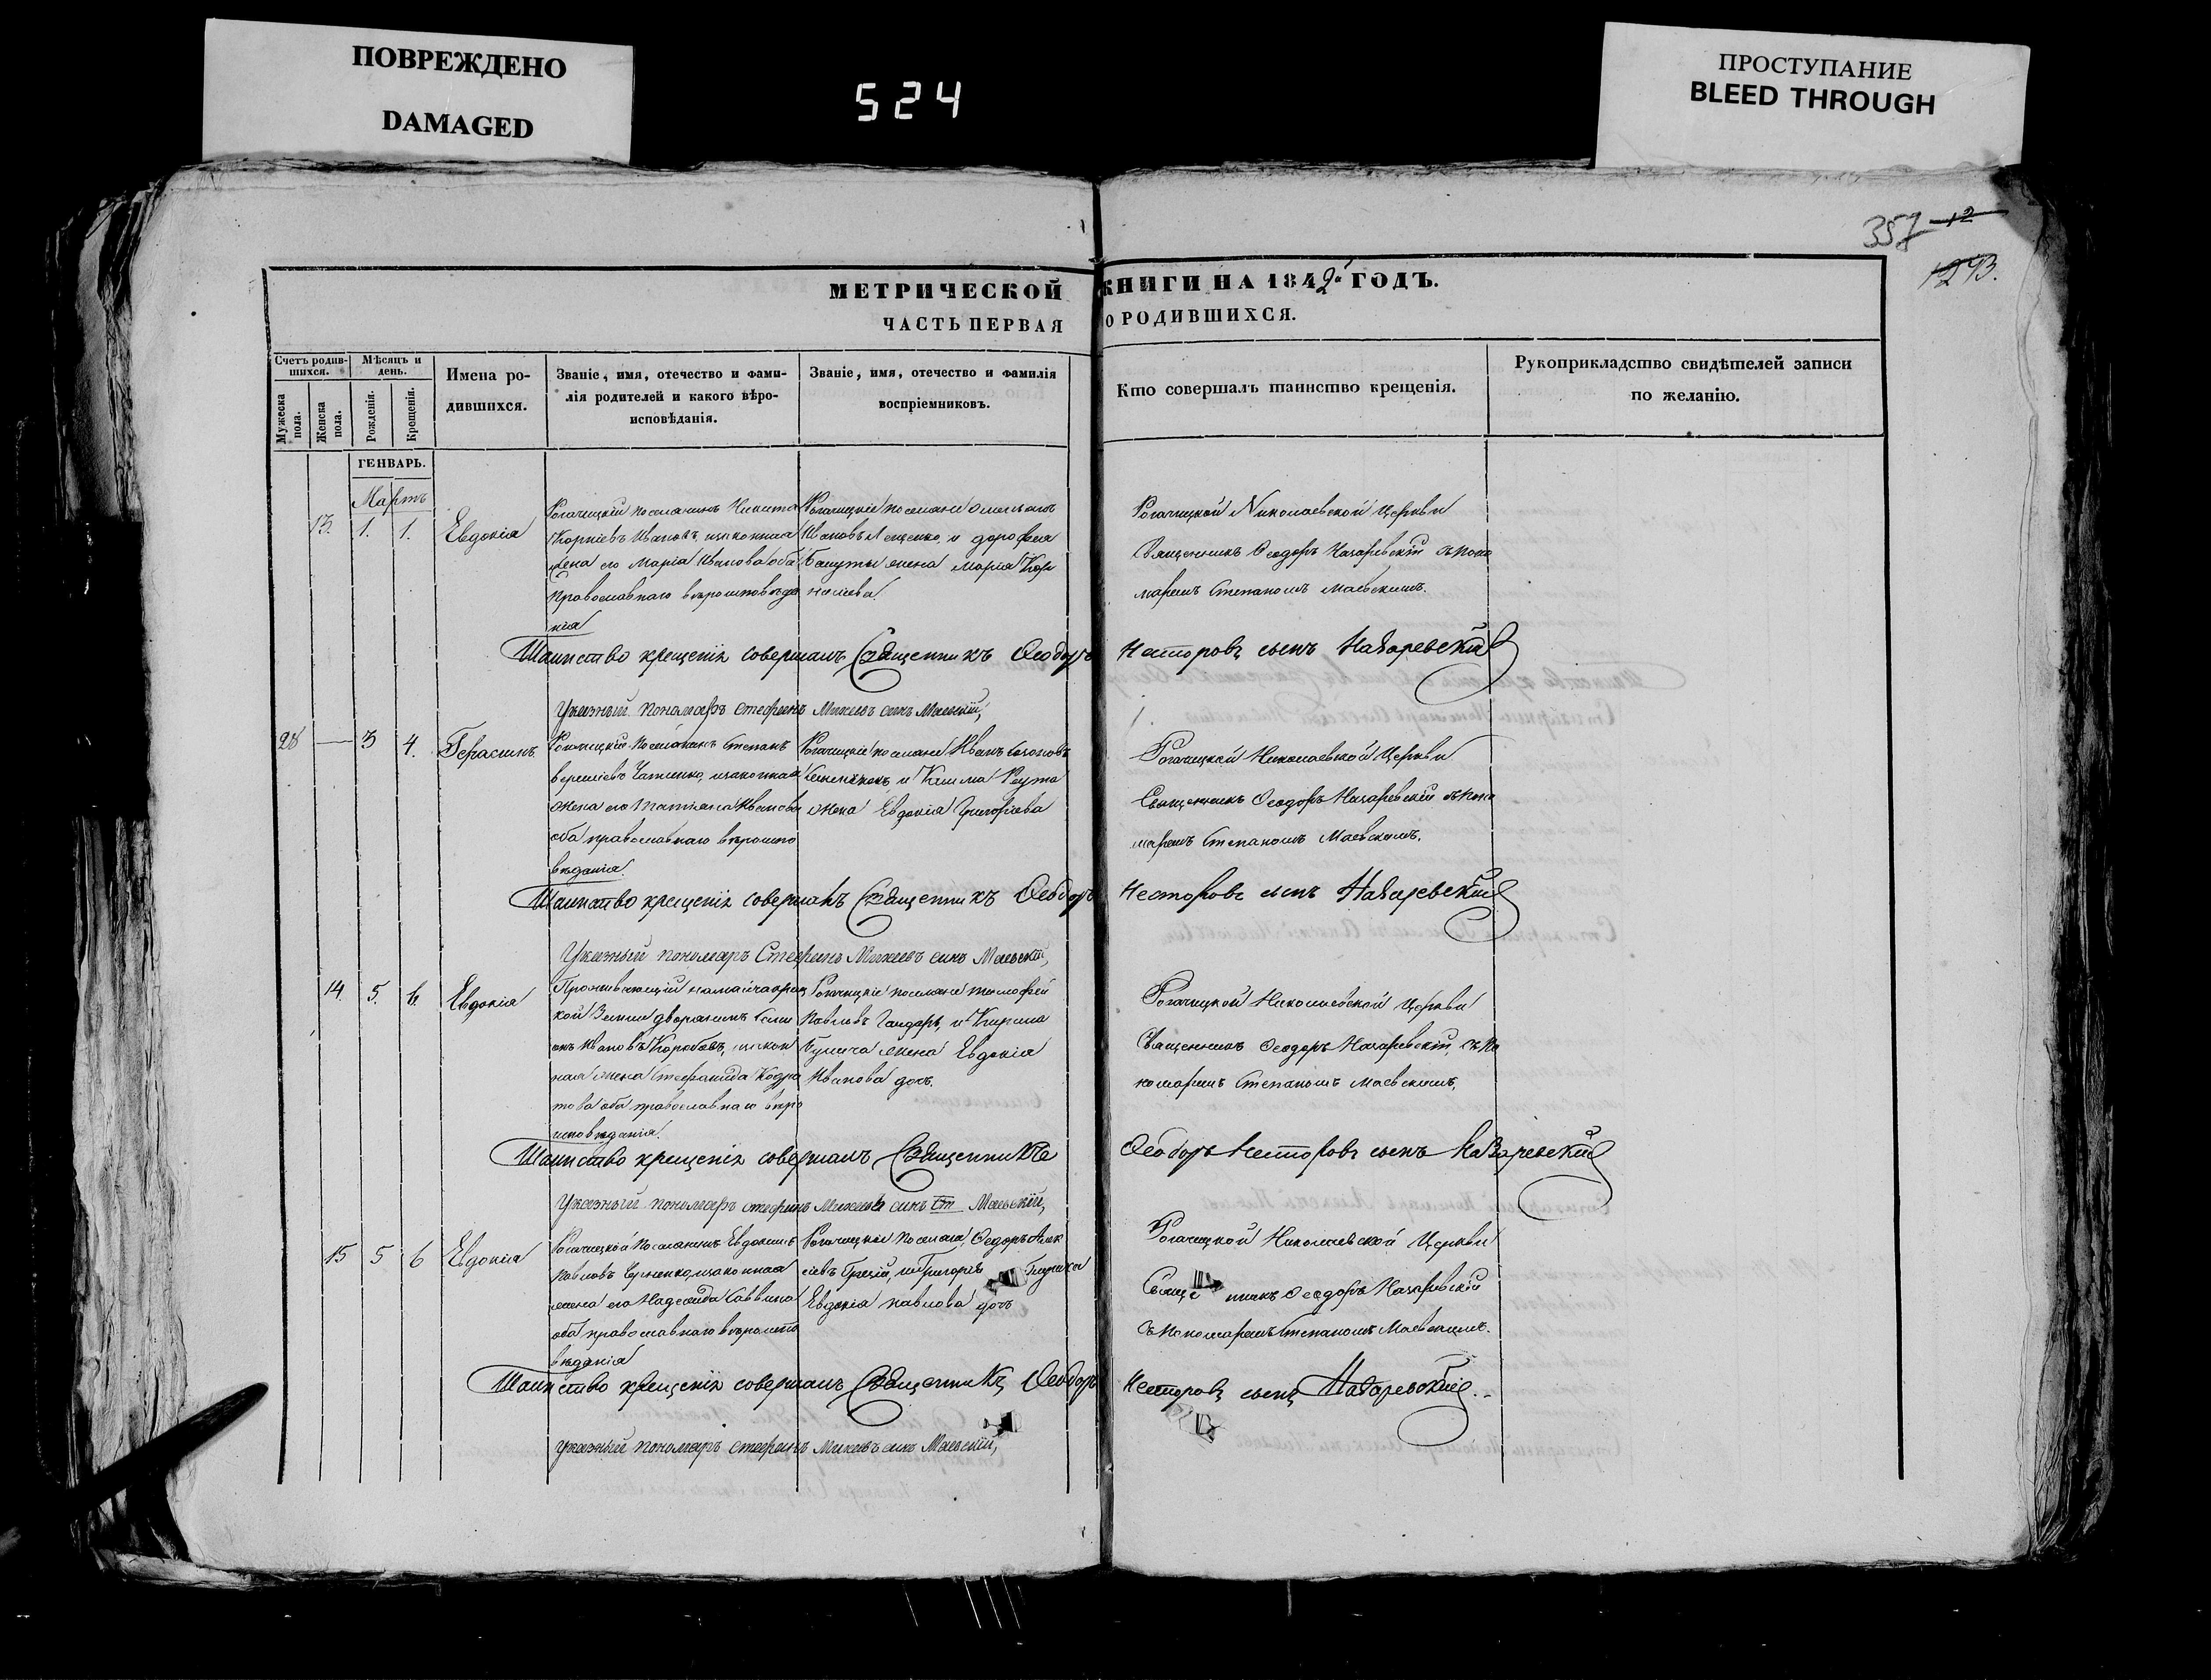 ПОВРЕЖДЕНО
DAMAGED
524
ПРОСТУПАНИЕ
BLEED THROUGH
357 12
1293.
МЕТРИЧЕСКОЙ КНИГИ НА 1842 ГОДЪ.
ЧАСТЬ ПЕРВАЯ О РОДИВШИХСЯ.
Счетъ родив-
шихся.
Мужеска
пола.
Женска
пола.
Мѣсяцъ и
день.
Рожденія.
Крещенія.
Имена ро-
дившихся.
Званіе, имя, отечество и фами-
лія родителей и какого вѣро-
исповѣданія.
Званіе, имя, отечество и фамилія
воспріемниковъ.
Кто совершалъ таинство крещенія.
Рукоприкладство свидѣтелей записи
по желанію.
ГЕНВАРЬ.
Мартъ
13. 1. 1. Евдокія
Рогачицкій поселянинъ Никита
Корніевъ Ивановъ, изаконная
жена его Марія Иванова оба
Православнаго вѣроисповѣда
нія
Рогачицкіе поселяне
Ивановъ Лещенко, и дорофея
жена Марія Кор
неліева.
Рогачицкой Николаевской Церкви
Священникъ Ѳеодоръ Назаревскій съ поно
маремъ Степаномъ Маевскимъ.
Таинство крещенія совершалъ Священникъ Ѳеодоръ Несторовъ сынъ Назаревскій
Указный пономарь Стефанъ Михеевъ синъ Маевскій,
28 — 3 4. Герасимъ
Рогачицкій Поселянинъ Степанъ
изаконная
жена его Татіана Иванова
оба православнаго вѣроиспо
вѣданія.
Рогачицкіе поселяне Иванъ
и Клима Реута
жена Евдокія Григоріева
Рогачицкой Николаевской Церкви
Священникъ Ѳеодоръ Назаревскій съ поно
маремъ Степаномъ Маевскимъ.
Таинство крещенія совершалъ Священникъ Ѳеодоръ Несторовъ сынъ Назаревскій
Указный пономарь Стефанъ Михеевъ синъ Маевскій,
14. 5. 6. Евдокія
Проживающій
кой Земли дворянинъ
Ивановъ Коробовъ, изакон
ная жена Стефанида Кодра
това оба православнаго вѣро
исповѣданія.
Рогачицкіе поселяне Тимофей
Павловъ Гандаръ, и Кирила
жена Евдокія
Иванова дочь.
Рогачицкой Николаевской Церкви
Священникъ Ѳеодоръ Назаревскій, съ по
номаремъ Степаномъ Маевскимъ,
Таинство крещенія совершалъ Священникъ Ѳеодоръ Несторовъ сынъ Назаревскій
Указный пономарь Стефанъ Михеевъ синъ Маевскій,
15 5 6 Евдокія
Рогачицкой Поселянинъ Евдокимъ
Павловъ изаконная
жена его Надежда Саввина
оба православнаго вѣроиспо
вѣданія
Рогачицкіе Поселяне, Ѳедоръ Алек
сіевъ и Григорія
Евдокія павлова дочь
Рогачицкой Николаевской Церкви
Священникъ Ѳеодоръ Назаревскій
съ Пономаремъ Степаномъ Маевскимъ.
Таинство крещенія совершалъ Священникъ Ѳеодоръ Несторовъ сынъ Назаревскій.
Указный пономарь Стефанъ Михеевъ синъ Маевскій,